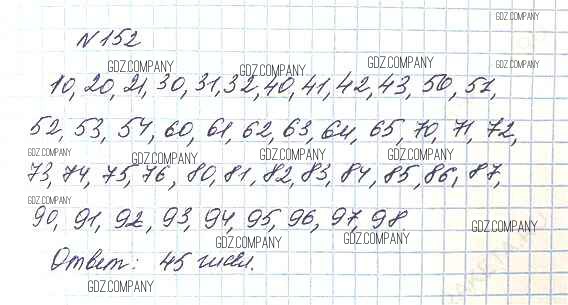 N 152
GDZ.COMPANY
GDZ.COMPANY GDZ.COMPANY GDZ.COMPANY
10, 20, 21, 30, 31, 32, 40, 41, 42, 43, 50, 51,
GDZ.COMPANY GDZ.COMPANY GDZ.COMPANY
52, 53, 54, 60, 61, 62, 63, 64, 65, 70, 71, 72,
GDZ.COMPANY GDZ.COMPANY GDZ.COMPANY GDZ.COMPANY
73, 74, 75, 76, 80, 81, 82, 83, 84, 85, 86, 87,
GDZ.COMPANY
90, 91, 92, 93, 94, 95, 96, 97, 98.
GDZ.COMPANY GDZ.COMPANY GDZ.COMPANY
Ответ: 45 чисел.
GDZ.COMPANY